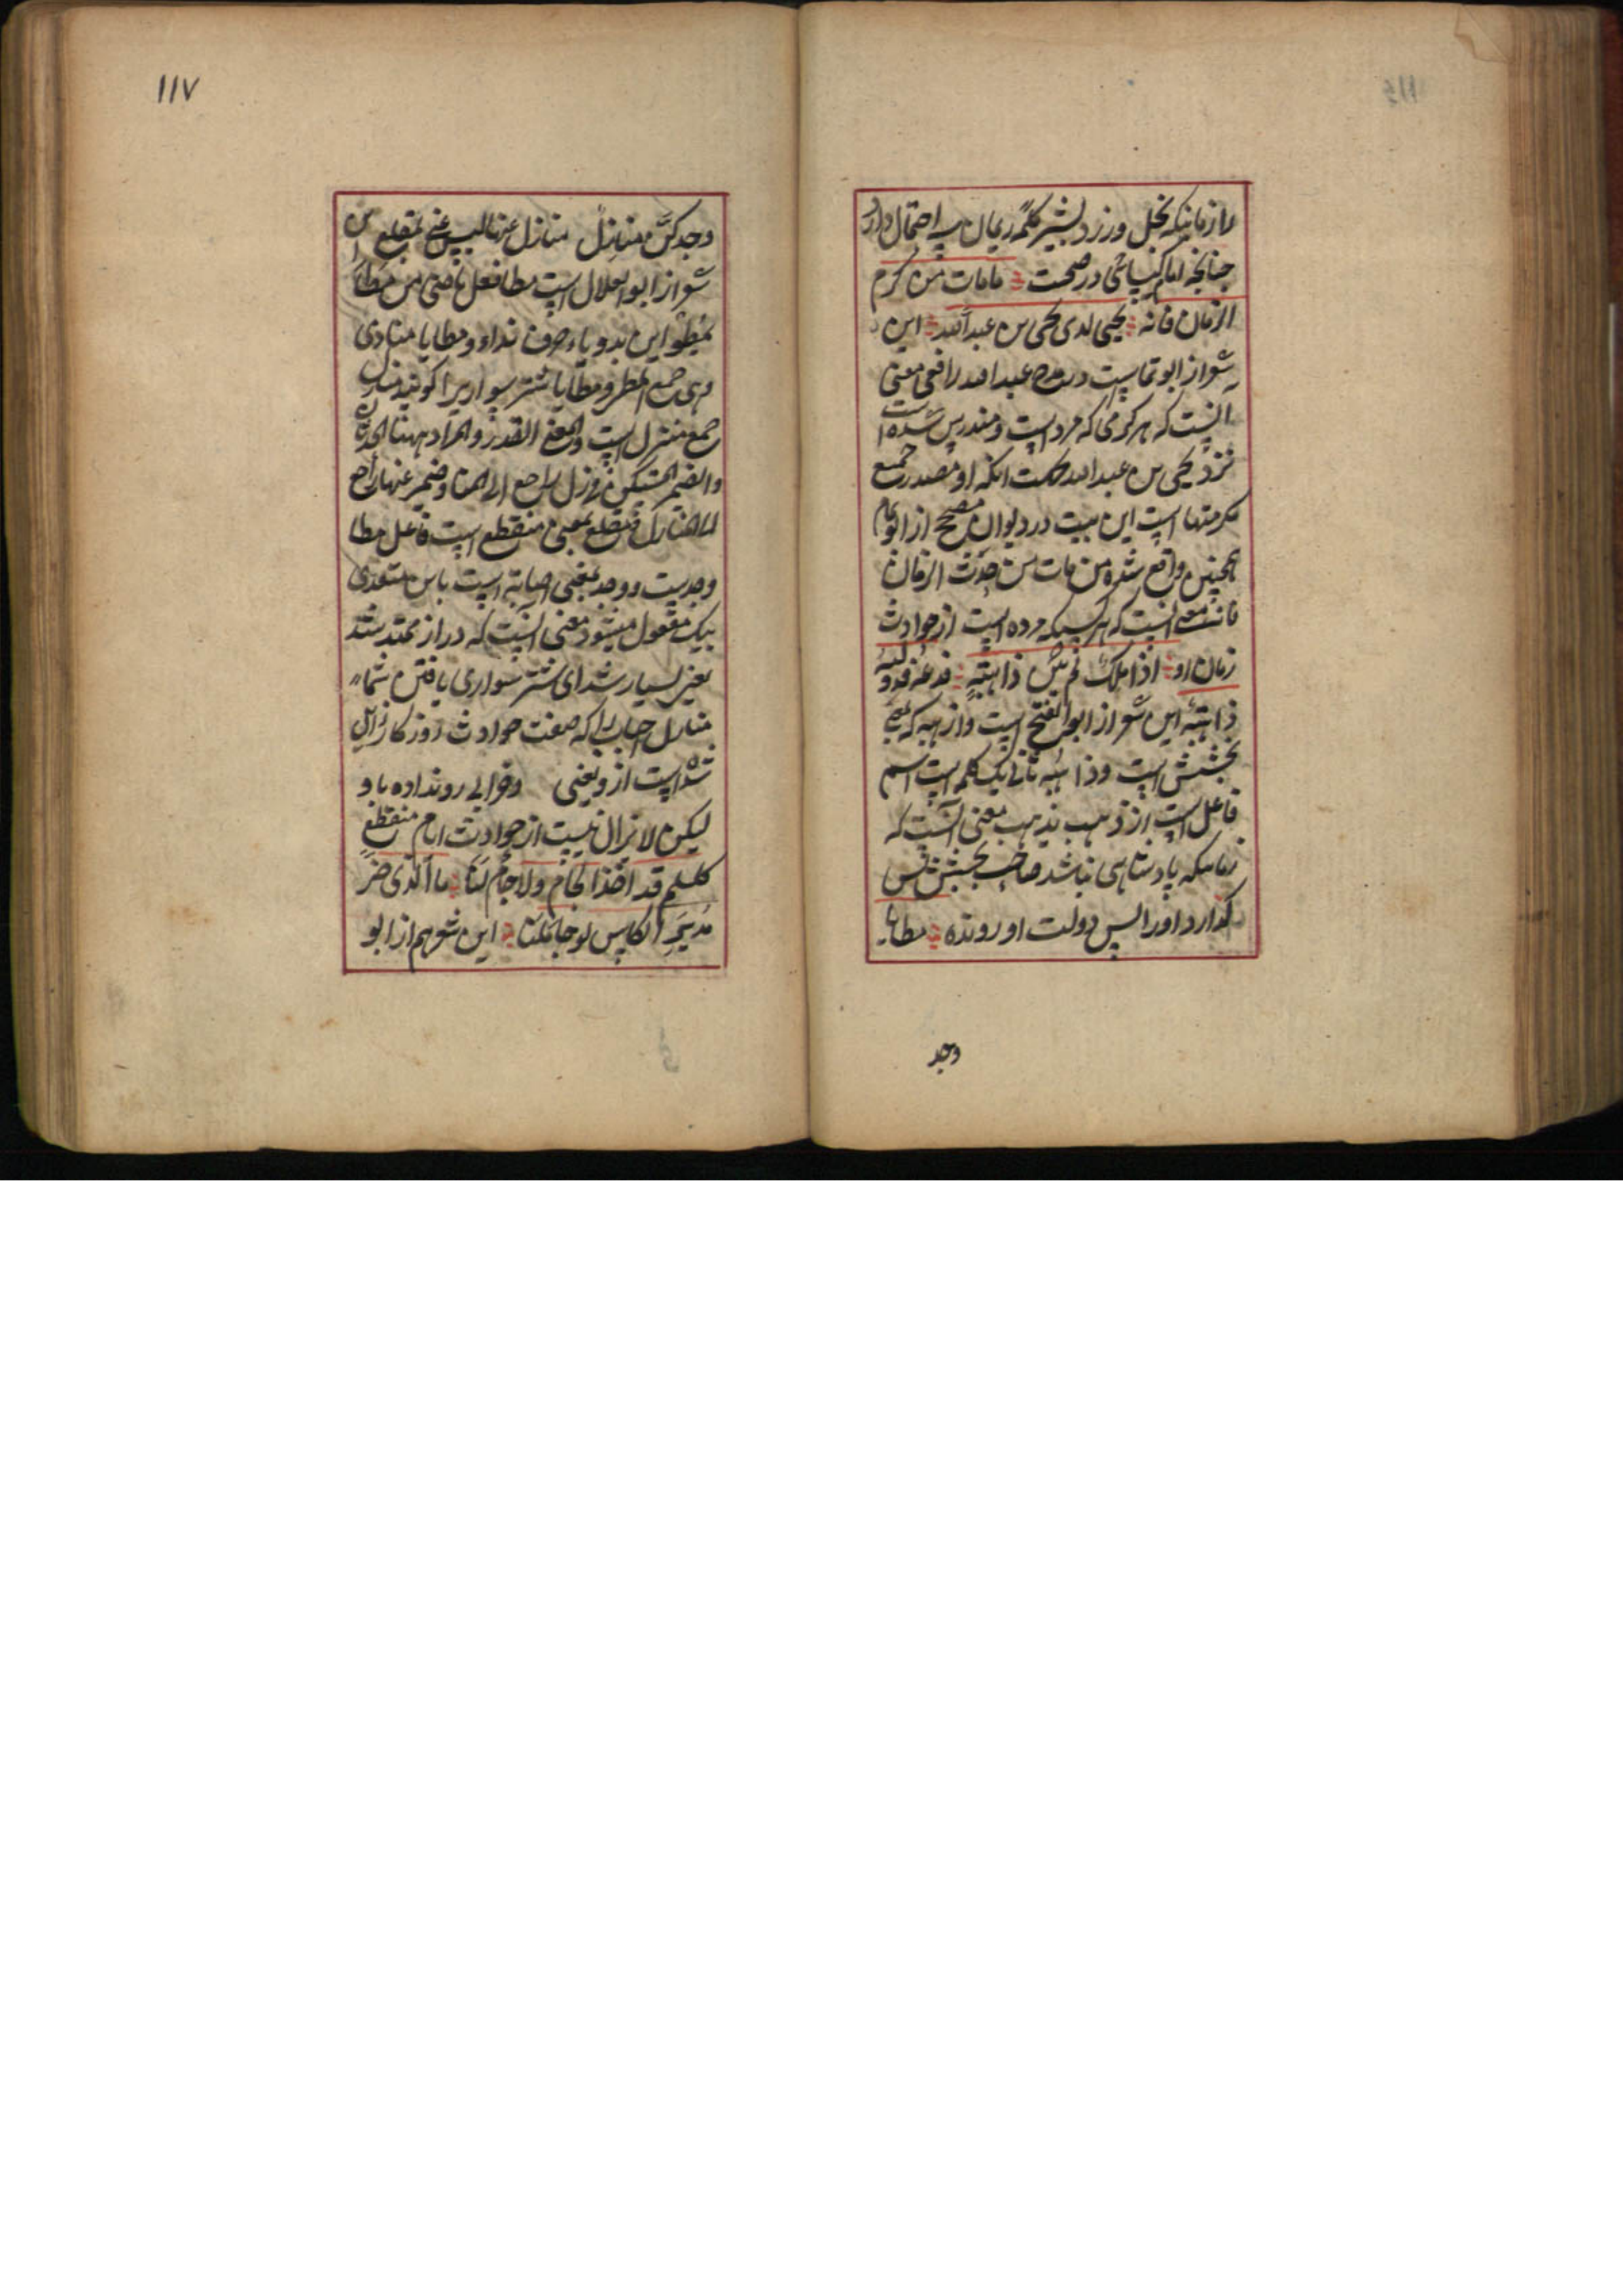 را زمانیکه بخل ورزد بشیر کلمه ریمان سه احتمال دارد
چنانچه امام در صحت مامات من کرم
الزمان فانه یحیی لدی یحیی بن عبدالله این
شعر از ابو تمام است در مدح عبدالله معنی
آنست که هر کرمی که مرد است و مندرس شده است
نزد یحیی بن عبدالله حکمت آنکه او مصدر جمیع
مکرمتها است این بیت در دیوان مصحح از ابو تمام
همچنین واقع شده من مات من حدث الزمان
فانه معنی آنست که هر کسیکه مرده است از حوادث
زمان او اذا ملک لم یکن ذا هبة فدعه فدولته
ذاهبة این شعر از ابو الفتح است و از هبه که بمعنی
بخشش است و ذاهبه ثانی یک کلمه است اسم
فاعل است از ذهب یذهب معنی آنست که
زمانیکه پادشاهی نباشد صاحب بخشش پس
گذارد او را پس دولت او رونده مطایا
وجد
١١٧
وجدکن منازل منازل عنها لیس عنی بمقلع این
شعر از ابو العلا است مطا فعل ماضی من مطا
یمطو این بدو یاء حرف نداء و مطایا منادی
وهی جمع المطر و مطایا شتر سواریرا کویند منازل
جمع منزل است و المراد ههنا
والضمیر المستکن فی زل راجع الی المنا و ضمیر عنها راجع
الی المنازل مقلع بمعنی منقطع است فاعل مطا
وجدیست و وجد بمعنی اصابة است باین متعدی
بیک مفعول میشود معنی آنست که دراز ممتد شد
یعنی بسیار شد ای شتر سواری یافتن شما
منازل احباب را که صفت حوادث روزکار زایل
شده است از و یعنی وخرابی رونداده باو
لیکن لا یزال نیست از حوادث ایام منقطع
کلکلم قد اخذ الجام ولا جام لنا ما الذی ضر
مدیر الکاس لو جاملنا این شعر هم از ابو